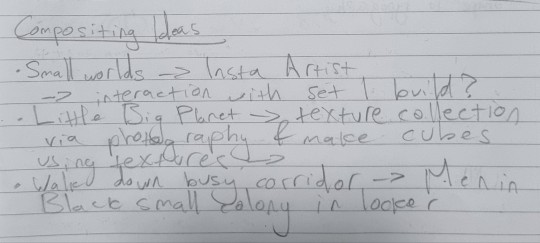 Compositing Ideas
· Small worlds -> Insta Artist
-> interaction with set I build?
· Little Big Planet -> texture collection
via photography & make cubes
using textures
· Walk down busy corridor -> Men in
Black small colony in locker